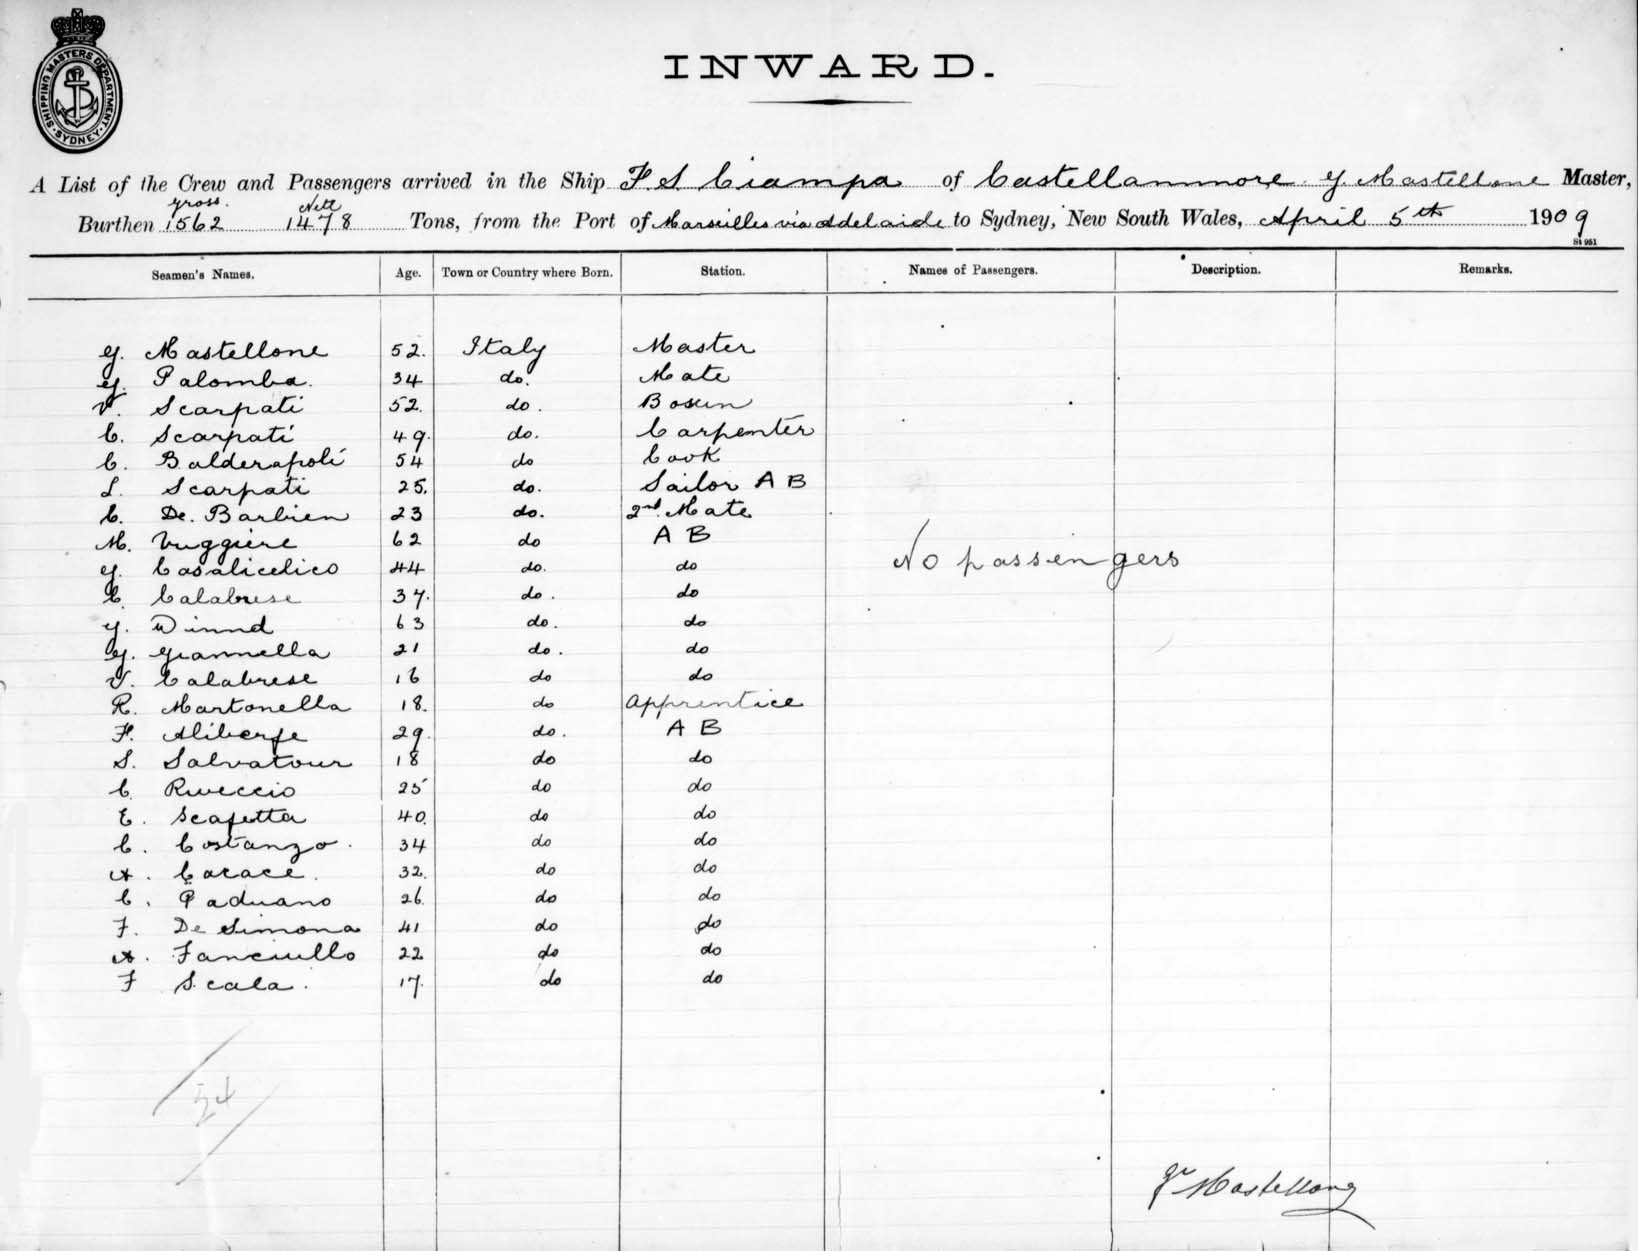 SHIPPING MASTERS DEPARTMENT. SYDNEY.
INWARD.
A List of the Crew and Passengers arrived in the Ship F S Ciampa of Castellammore G Mastellone Master,
Gross. Nett
Burthen 1562 1478 Tons, from the Port of Marseilles via Adelaide to Sydney, New South Wales, April 5th 1909
St 951
Seamen's Names. Age. Town or Country where Born. Station. Names of Passengers. Description. Remarks.
G. Mastellone 52. Italy Master
G. Palomba. 34 do. Mate
V. Scarpati 52. do. Bosun
C. Scarpati 49. do. Carpenter
C. Balderapoli 54 do Cook
L. Scarpati 25. do. Sailor A B
C. De. Barbien 23 do. 2nd Mate
M. Vuggiere 62 do A B
G. Casalicelico 44 do. do
No passengers
C. Calabrese 37. do. do
G. 63 do. do
G. Giannella 21 do. do
V. Calabrese 16 do do
R. Martonella 18. do Apprentice
F. Aliberfe 29. do. A B
S. Salvatour 18 do do
C. 25 do do
E. Scafetta 40. do do
C. Costanzo. 34 do do
A. Cacace. 32. do do
C. Paduano 26. do do
F. De Simona 41 do do
A. Fanciullo 22 do do
F Scala. 17. do do
24
Gr Mastellone